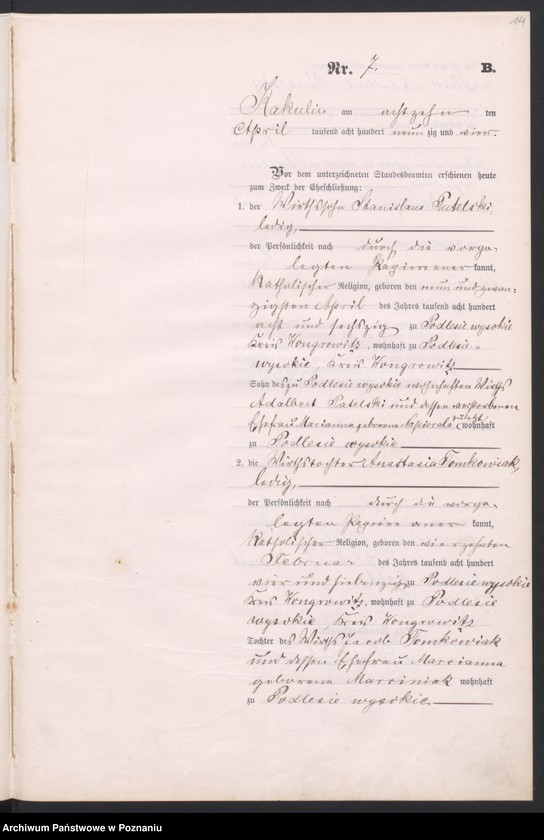 14
Nr. 7. B.
Kakulin am achtzehn ten
April tausend acht hundert neun zig und vier.
Vor dem unterzeichneten Standesbeamten erschienen heute
zum Zweck der Eheschließung:
1. der Wirthssohn Stanislaus Patelski,
ledig,
der Persönlichkeit nach durch die vorge-
legten Papiere aner kannt,
Katholischer Religion, geboren den neun und zwan-
zigsten April des Jahres tausend acht hundert
acht und sechszig zu Podlesie wysokie
Kreis Wongrowitz, wohnhaft zu Podlesie-
wysokie, Kreis Wongrowitz
Sohn des zu Podlesie wysokie wohnhaften Wirths
Adalbert Patelski und dessen verstorbenen
Ehefrau Marianna geborene Napierala zuletzt wohnhaft
zu Podlesie wysokie
2. die Wirthstochter Anastasia Tomkowiak,
ledig,
der Persönlichkeit nach durch die vorge-
legten Papiere aner kannt,
Katholischer Religion, geboren den vierzehnten
Februar des Jahres tausend acht hundert
vier und siebenzig zu Podlesie wysokie
Kreis Wongrowitz, wohnhaft zu Podlesie
wysokie, Kreis Wongrowitz
Tochter des Wirths Jacob Tomkowiak
und dessen Ehefrau Marcianna
geborene Marciniak wohnhaft
zu Podlesie wysokie.
Archiwum Państwowe w Poznaniu